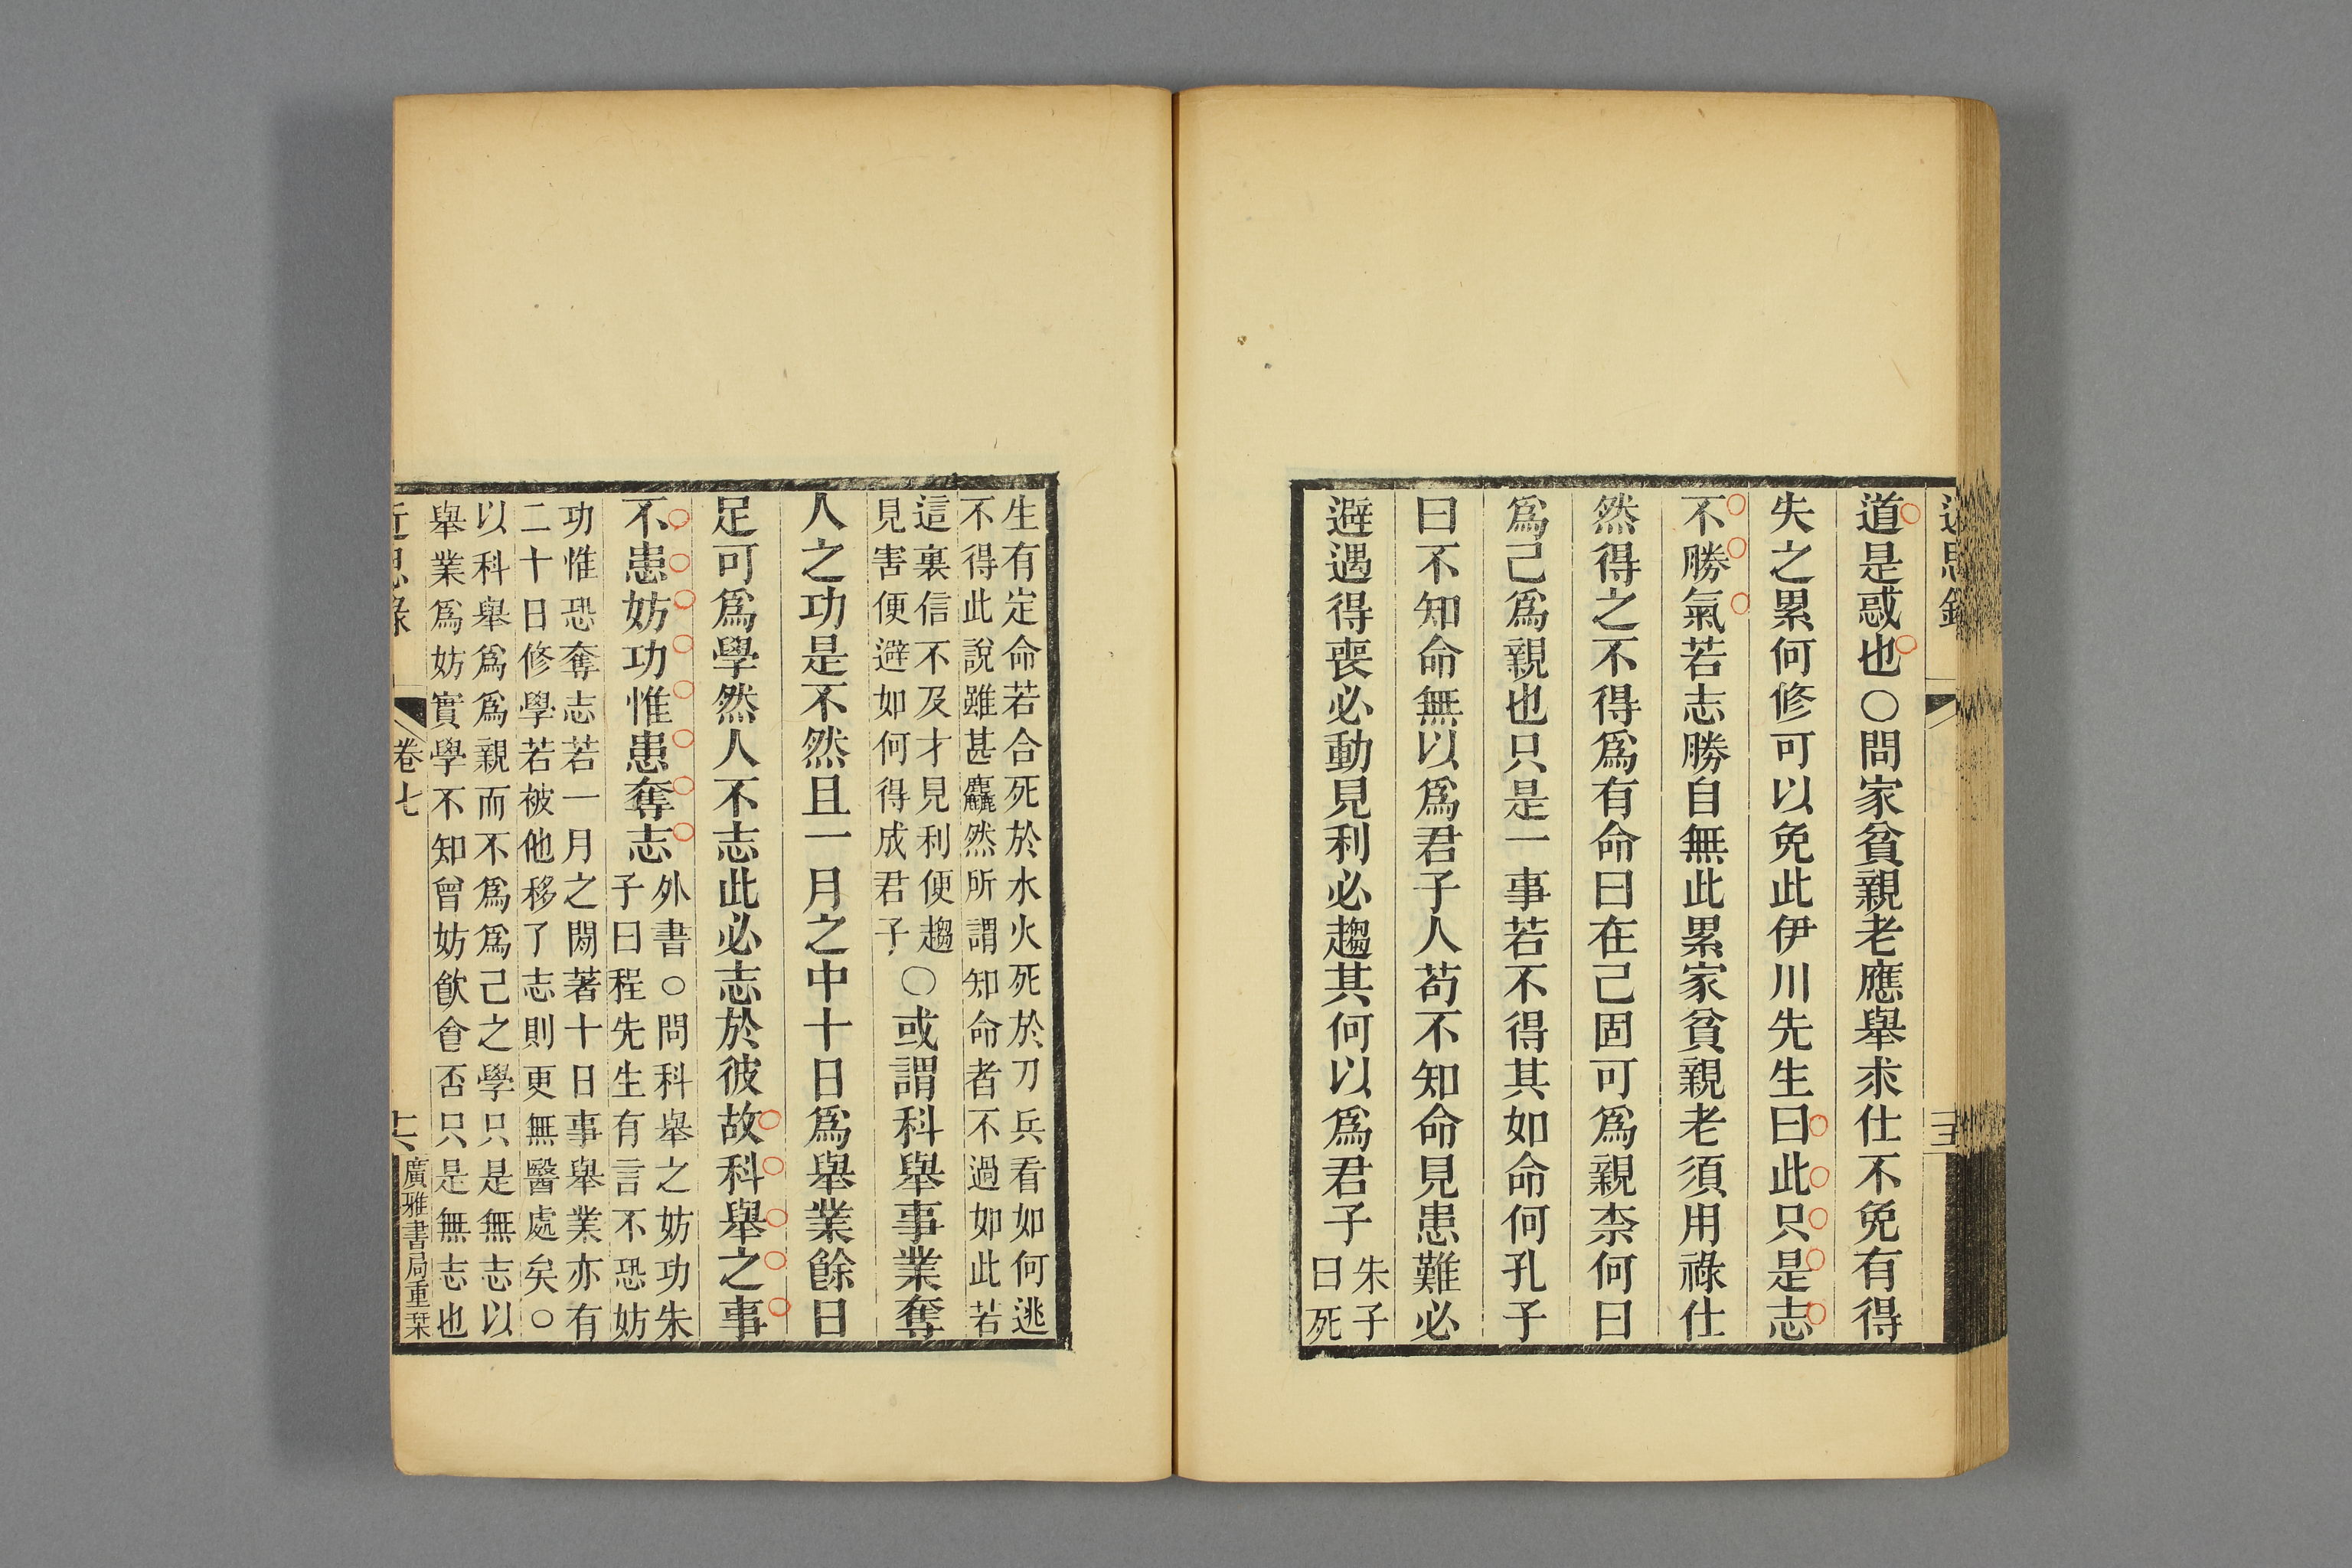 道是惑也○問家貧親老應舉求仕不免有得
失之累何修可以免此伊川先生曰此只是志
不勝氣若志勝自無此累家貧親老須用祿仕
然得之不得爲有命曰在己固可爲親柰何曰
爲己爲親也只是一事若不得其如命何孔子
曰不知命無以爲君子人苟不知命見患難必
避遇得喪必動見利必趨其何以爲君子
朱子
曰死
生有定命若合死於水火死於刀兵看如何逃
不得此說雖甚麤然所謂知命者不過如此若
這裏信不及才見利便趨
見害便避如何得成君子
○或謂科舉事業奪
人之功是不然且一月之中十日爲舉業餘日
足可爲學然人不志此必志於彼故科舉之事
不患妨功惟患奪志
外書○問科舉之妨功朱
子曰程先生有言不恐妨
功惟恐奪志若一月之閒著十日事舉業亦有
二十日修學若被他移了志則更無醫處矣○
以科舉爲爲親而不爲爲己之學只是無志以
舉業爲妨實學不知曾妨飮食否只是無志也
近思錄
卷七
十六
廣雅書局重栞